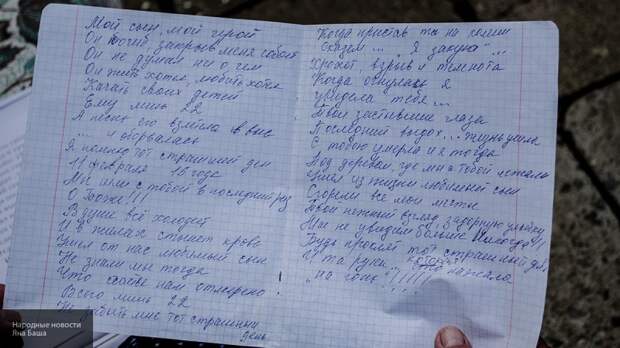 Мой сын, мой герой
Он погиб, закрыв меня собой
Он не думал ни о чем
Он жить хотел, любить хотел
Качать своих детей
Ему лишь 22
А песня его взлетела в высь
... и оборвалась
Я помню тот страшный день
11 февраля 15 года
Мы шли с тобой в последний раз
О Боже!!!
В душе всё холодей
И в жилах стынет кровь
Ушел от нас любимый сын
Не знали мы тогда
Что судьбе нам отмерено
Всего лишь 22
Не забыть мне тот страшный
день
Когда привстав ты на колени
Сказал... "Я закрою"...
Грохот, взрыв и темнота
Когда очнулась я
увидела тебя...
Твои застывшие глаза
Последний выдох... жизнь ушла
С тобою умерла и я тогда
Под деревом, где мы с тобой лежали
Ушел из жизни любимый сын
Сгорели все мои мечты
Твой нежный взгляд, задорную улыбку
Мы не увидим больше никогда!!!
Будь проклят тот страшный день
И та рука, которая
нажала
"на огонь"!!!!!!
Народные новости
Яна Баша